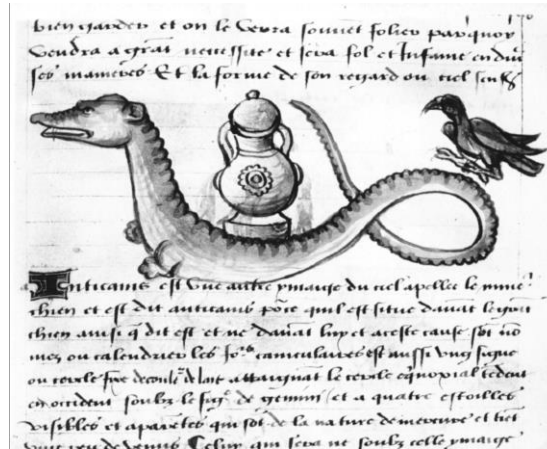 bien garder et on le verra souuet folier par quoy
vendra a grat necessite et sera fol et Infame en diu
ses manieres Et la forme de son regard ou ciel sens
Anticanis est vne autre ymaige du ciel apellee le mine
chien et est dit anticanis pour ce quil est situe dauat le grat
chien ainsi q dit est et ne dauat luy et a ceste cause sot no
mez ou calendrier les Jors caniculaires est aussi vng signe
ou cercle attaignat le cercle equinoxial tedent
en occident soubz le sig de gemini et a quatre estoilles
visibles et aparetes qui sot de la nature de mercure et tiet
vng peu de venus Celuy qui sera ne soubz celle ymaige